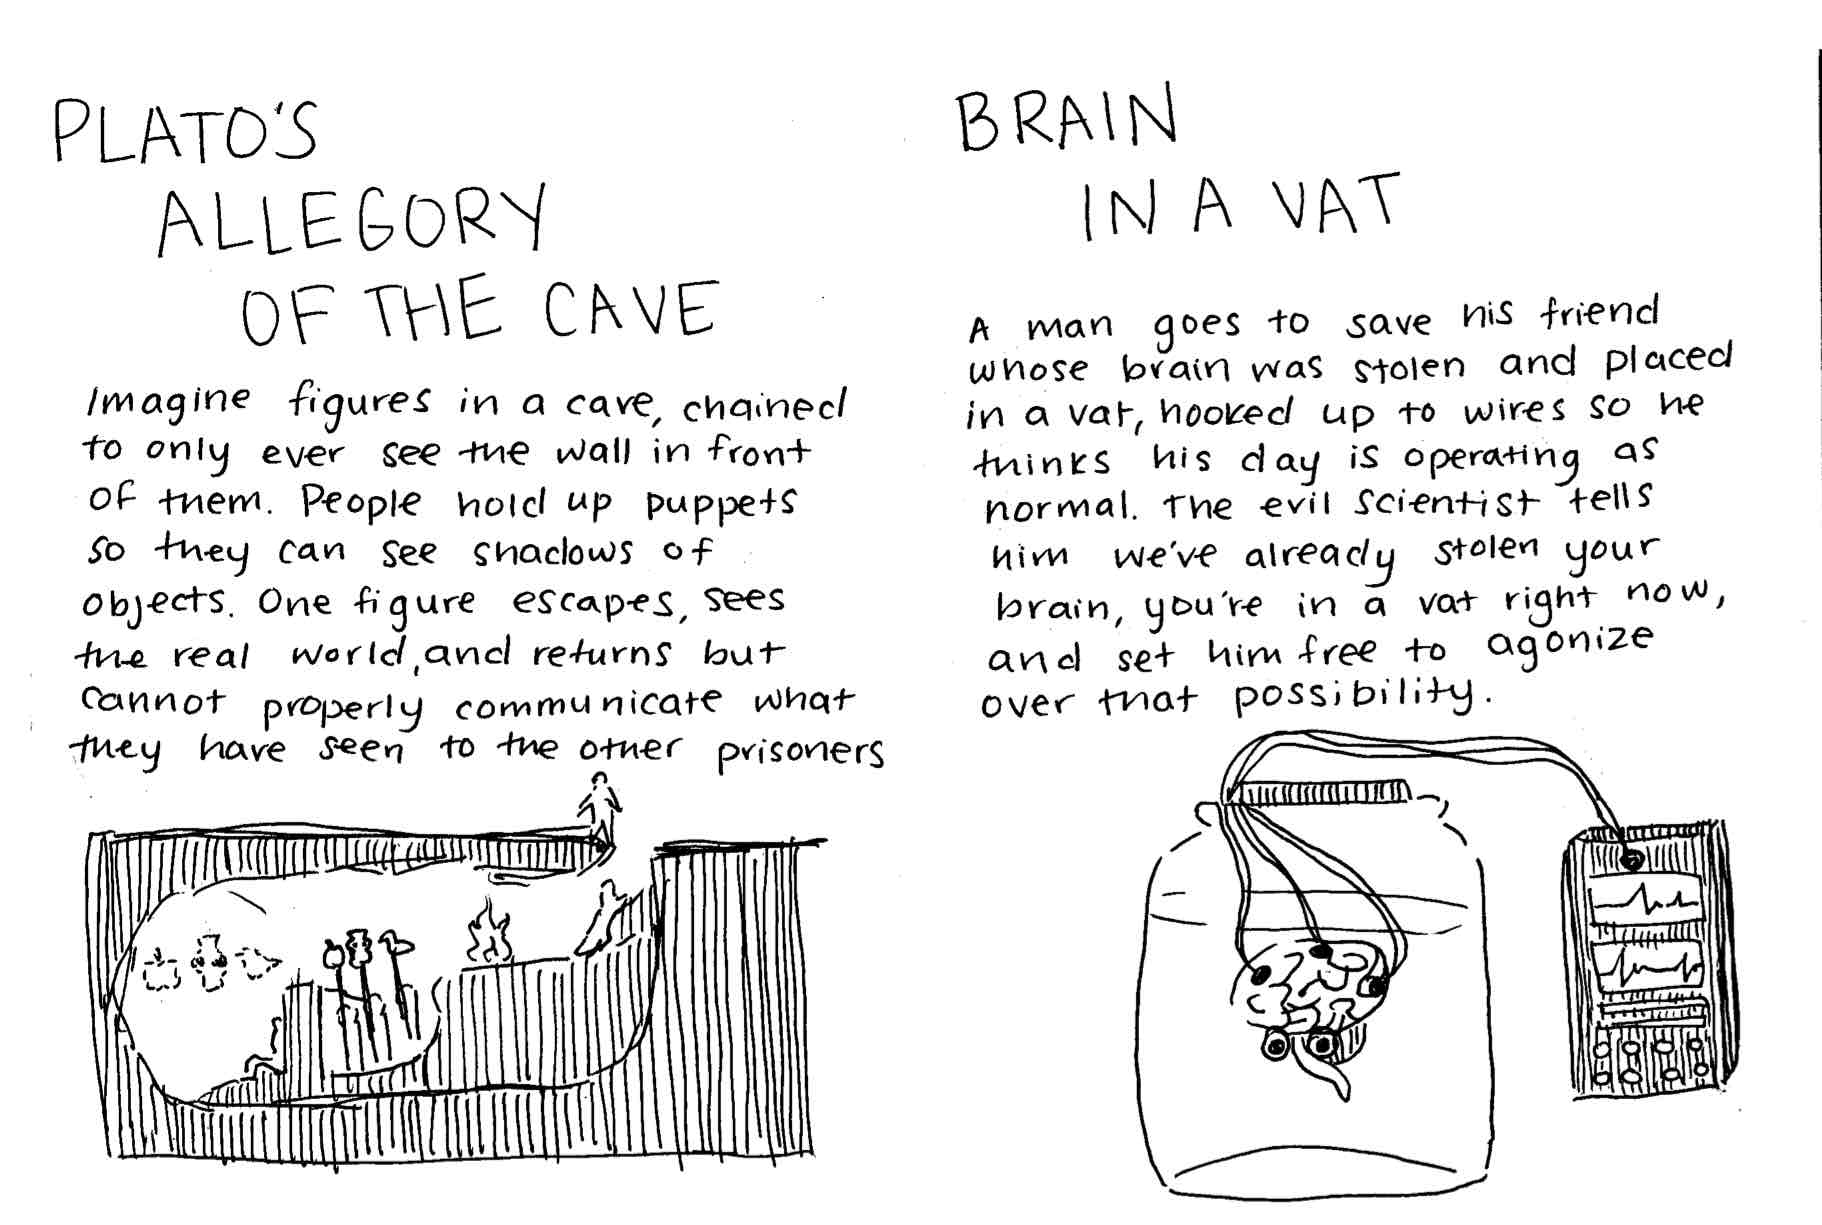 PLATO'S
ALLEGORY
OF THE CAVE
Imagine figures in a cave, chained
to only ever see the wall in front
of them. People hold up puppets
so they can see shadows of
objects. One figure escapes, sees
the real world, and returns but
cannot properly communicate what
they have seen to the other prisoners
BRAIN
IN A VAT
A man goes to save his friend
whose brain was stolen and placed
in a vat, hooked up to wires so he
thinks his day is operating as
normal. The evil scientist tells
him we've already stolen your
brain, you're in a vat right now,
and set him free to agonize
over that possibility.